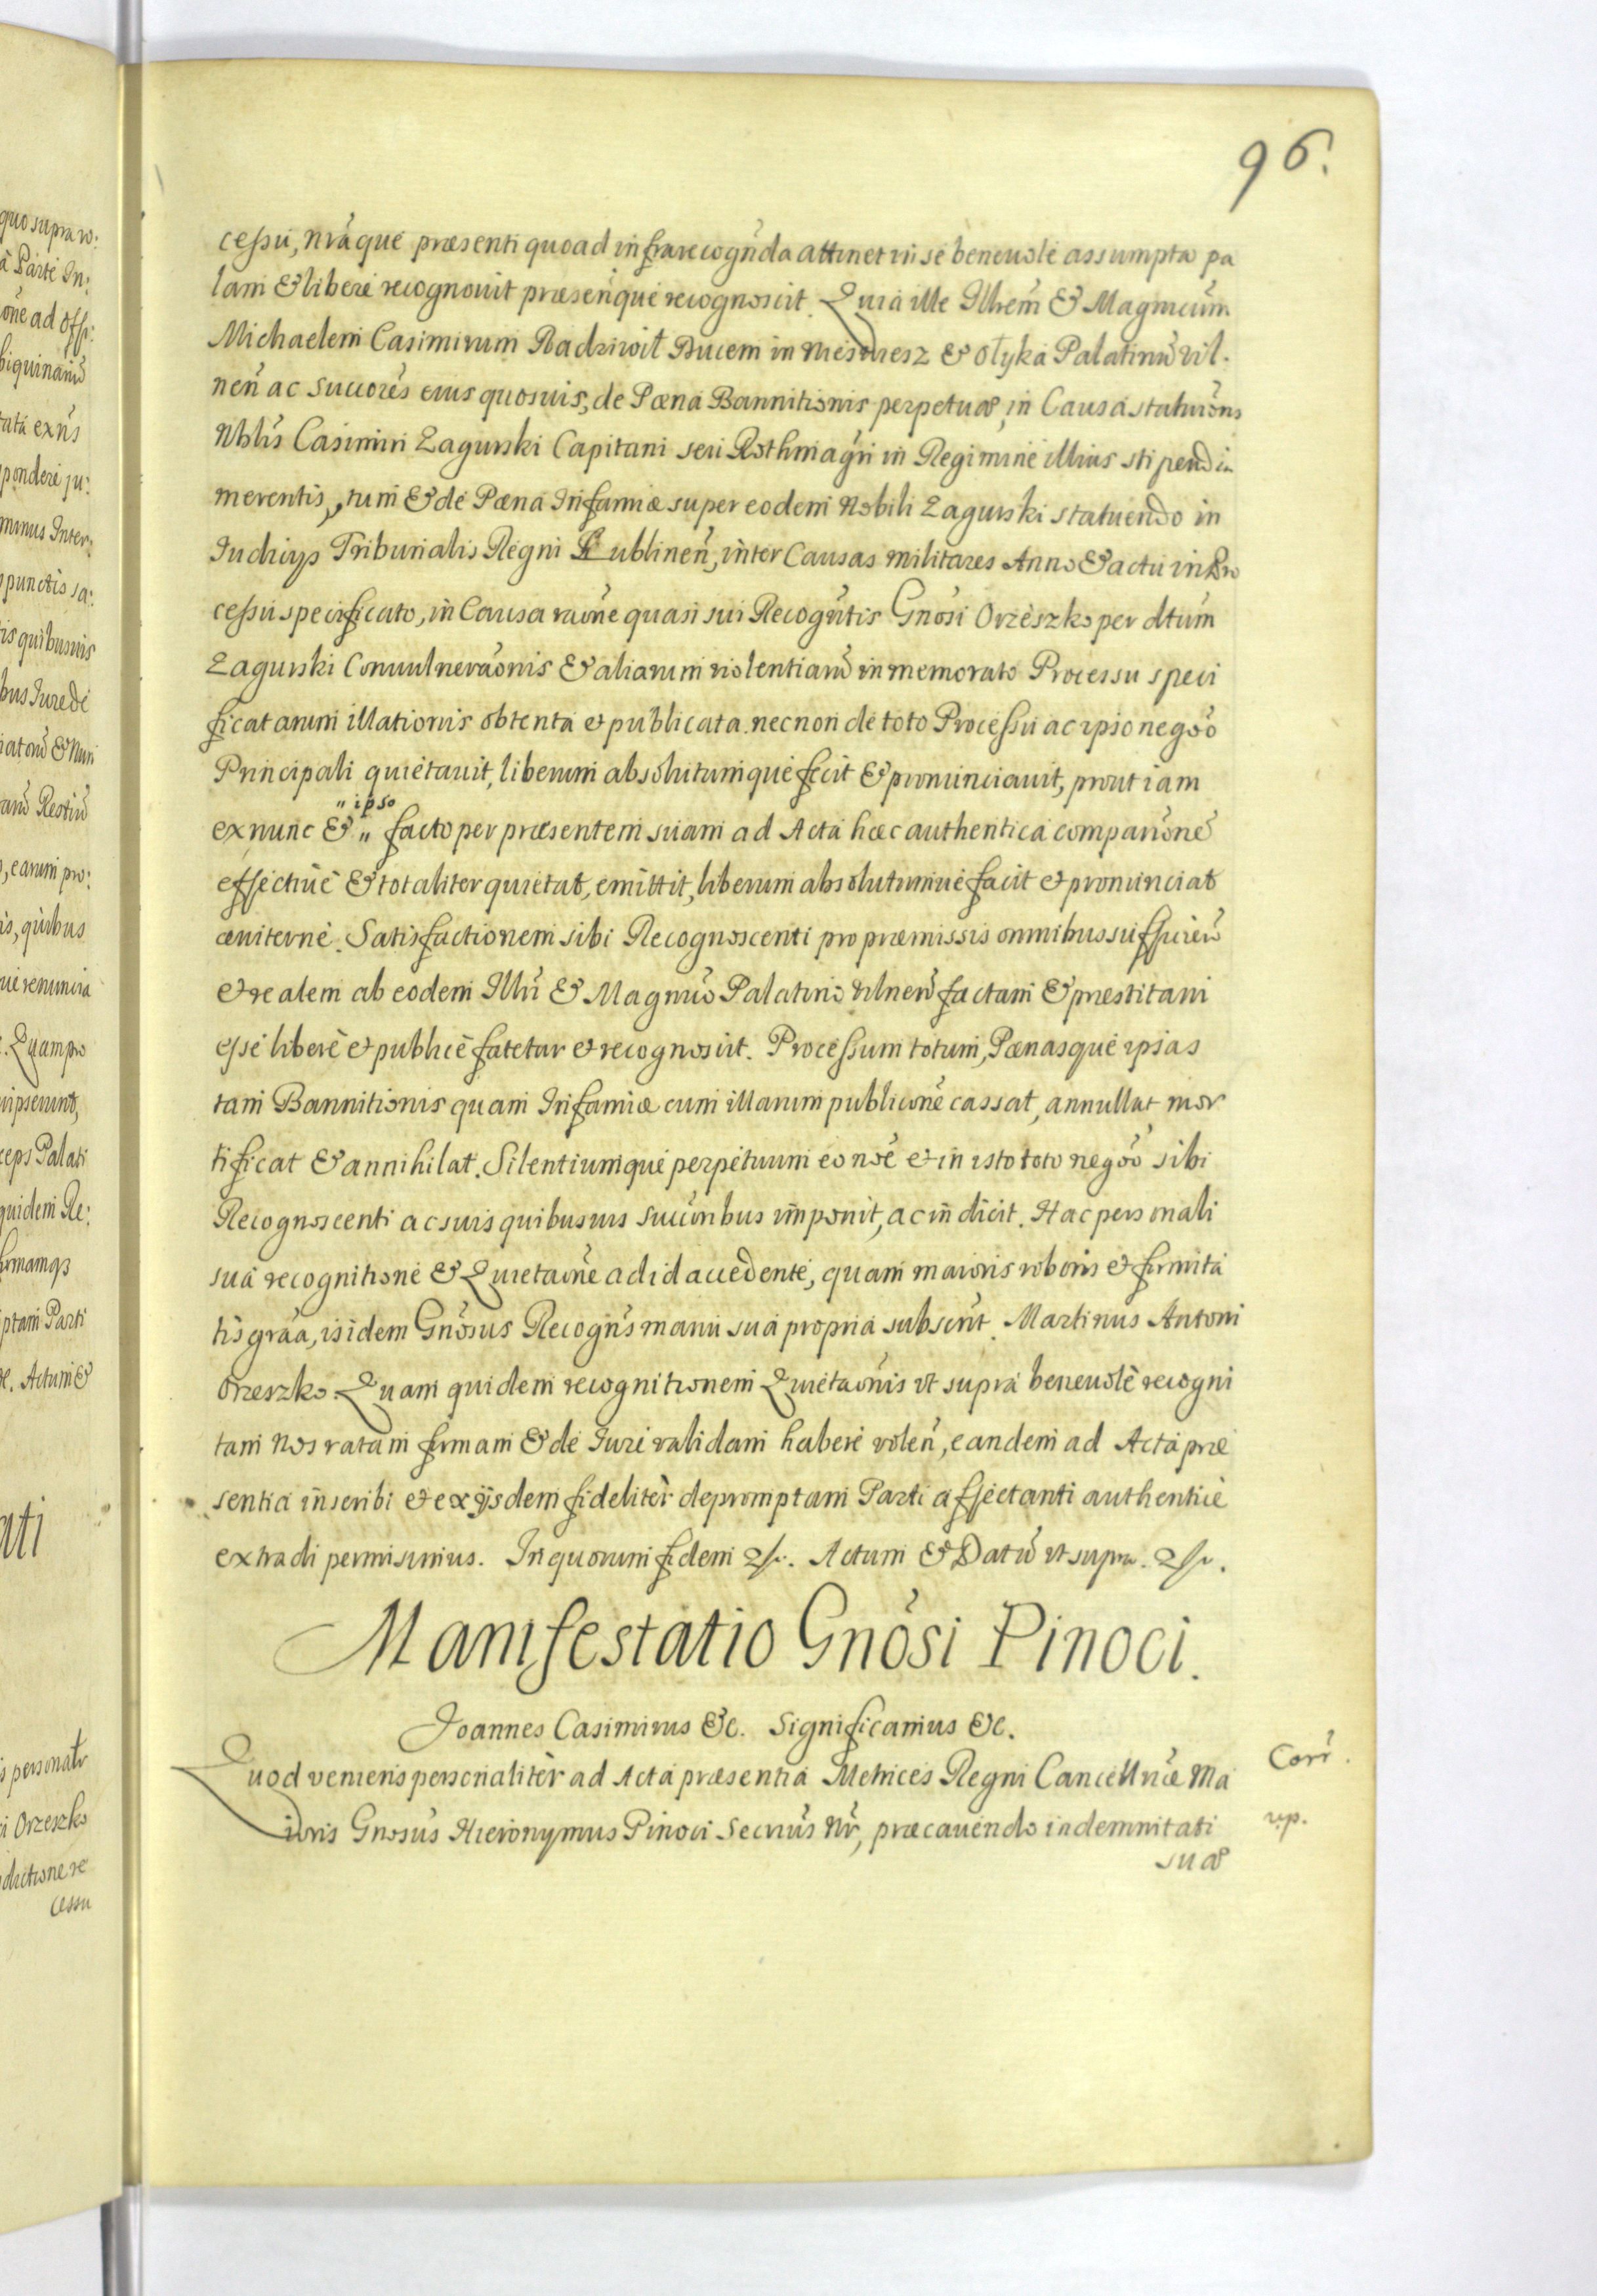 96.
cessu, nráque præsenti quoad infrarecognda attinet in se beneuole assumpta pa
lam & libere recognouit præsenque recognoscit. Quia ille Illrem & Magnicum
Michaelem Casimirum Radziwił Ducem in Nieswiesz & Ołyka Palatinũ Vil.
nen̄ ac Succores eius quosuis, de Pæna Bannitionis perpetuæ, in Causa statuions
Nblis Casimiri Zagurski Capitani seu Rothmagri in Regimine illius stipendia
merentis, tum & de Pæna Infamiæ super eodem Nobili Zagurski statuendo in
Iudicijs Tribunalis Regni Lublinen̄, inter Causas militares Anno & actu in Pro
cessu specificato, in Causa raõne quasi sui Recogntis Gnosi Orzeszko per dtum
Zagurski Conuulneraõnis & aliarum violentiarũ in memorato Processu speci
ficatarum illationis obtenta et publicata. necnon de toto Processu ac ipso negoõ
Principali quietauit, liberum absolutumque fecit & pronunciauit, prout iam
" ipso
exnunc & " facto per præsentem suam ad Acta hæc authentica comparõne
effectiue & totaliter quietat, emittit, liberum absolutumue facit et pronunciat
æuiterne. Satisfactionem sibi Recognoscenti pro præmissis omnibus sufficien̄
et realem ab eodem Illri & Magnico Palatino Vilnen̄ factam & præstitam
esse liberè et publicè fatetur et recognoscit. Processum totum, Pænasque ipsas
tam Bannitionis quam Infamiæ cum illarum publicone cassat, annullat mor
tificat & annihilat. Silentiumque perpetuum eo noe et in isto toto negoõ sibi
Recognoscenti ac suis quibusuis succoribus imponit, ac indicit. Hac personali
sua recognitione & Quietaõne ad id accedente, quam maioris roboris et firmita
tis gráa, isidem Gnosus Recogns manu sua propria subscrit. Martinus Antoni
Orzeszko. Quam quidem recognitionem Quietaõnis vt supra beneuolè recogni
tam Nos ratam firmam & de Iure validam habere volen̄, eandem ad Acta præ
sentia inscribi et ex ijsdem fideliter depromptam Parti affectanti authentice
extradi permisimus. In quorum fidem &c. Actum & Datũ vt supra. &c.
Manifestatio Gnosi Pinoci.
Joannes Casimirus &c. Significamus &c.
Quod veniens personaliter ad Acta præsentia Metrices Regni Cancellriæ Ma
ioris Gnosus Hieronymus Pinoci Secrius Nr, præcauendo indemnitati
suæ
Corr.
rp.
quo supra
a Parte In:
one ad Off:
tata exns
pondere ju:
minus Inter:
punctis sa:
tis quibusuis
bus Iure de
, earum pro:
is, quibus
ue renuncia
. Quam pro
ceps Palati
quidem Re:
ptam Parti
. Actum &
ati
s personatr
i Orzeszko
dictione re
cessu